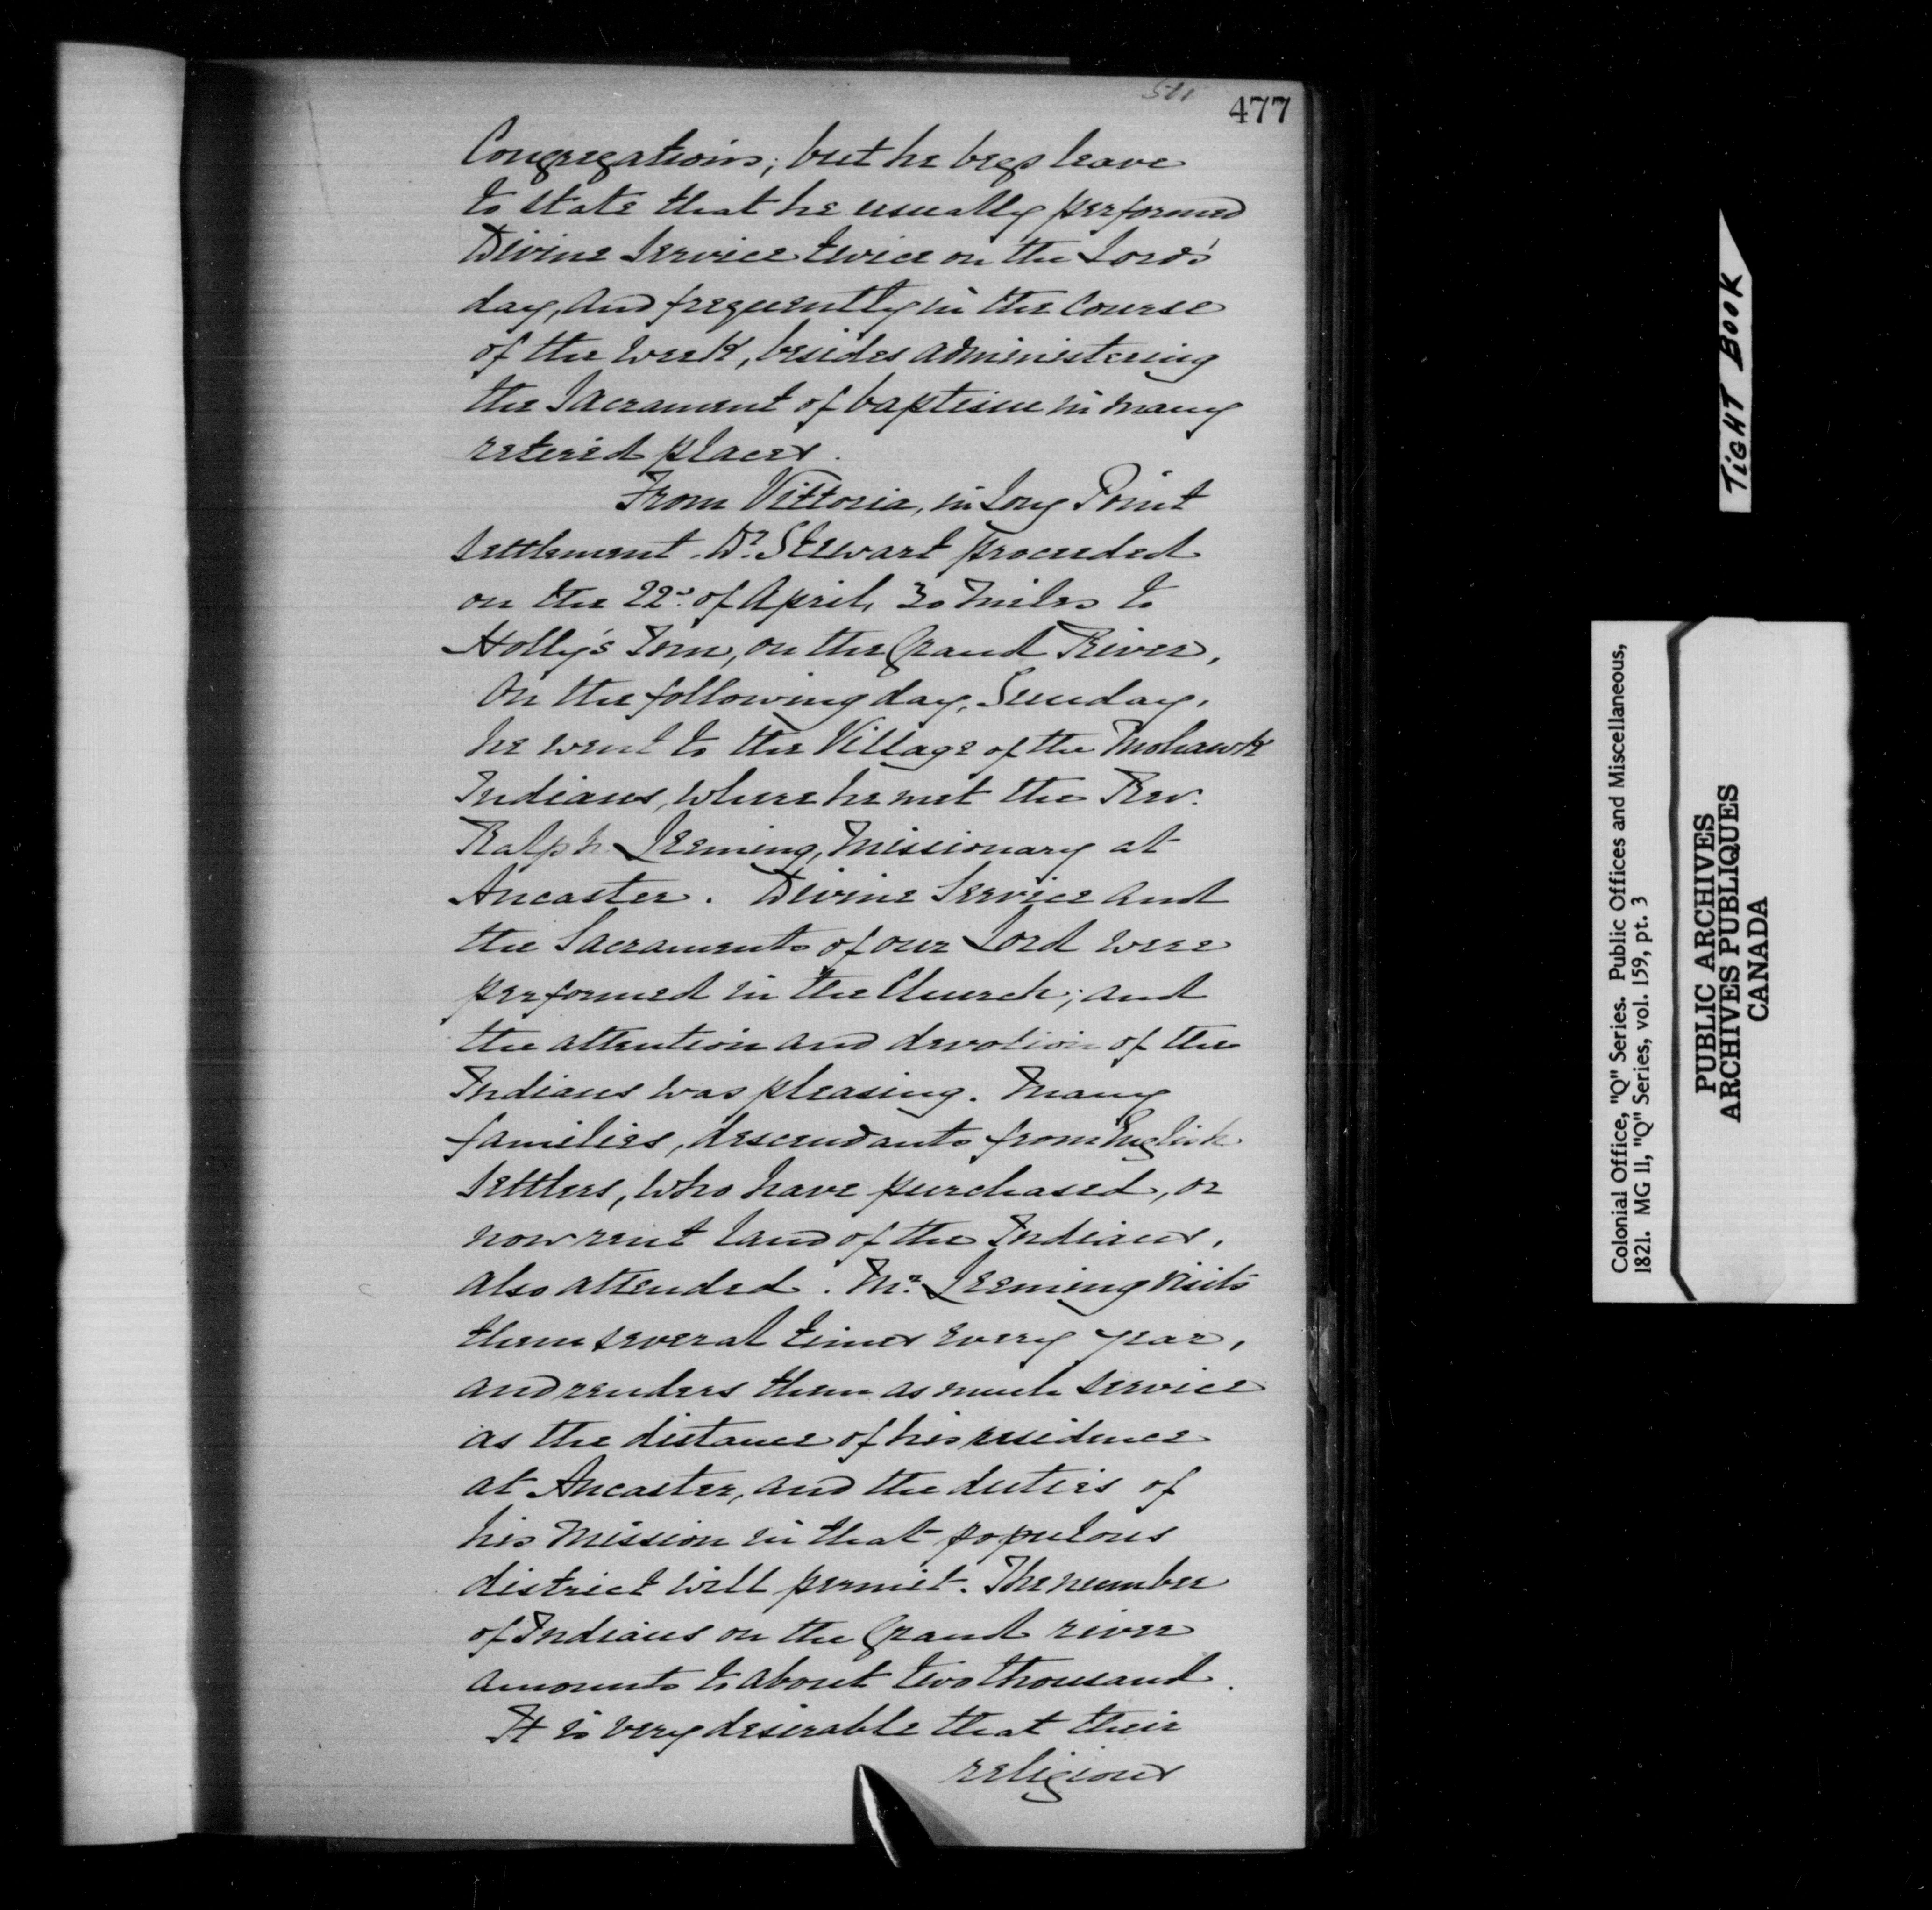 477
Congregations; but he begs leave
to state that he usually performed
Divine Service twice on the Lord's
day, and frequently in the course
of the week, besides administering
the Sacrament of baptism in many
retired places.
From Vittoria, in Long Point
settlement Dr. Stewart proceeded
on the 22d. of April, 30 miles to
Holly's Inn, on the Grand River,
On the following day, Sunday,
he went to the Village of the Mohawk
Indians, where he met the Rev.
Ralph Leeming, Missionary at
Ancaster. Divine Service and
the Sacraments of our Lord were
performed in the Church; and
the attention and devotion of the
Indians was pleasing. Many
families, descendants from English
Settlers, who have purchased, or
now rent land of the Indians,
also attended. Mr. Leeming visits
them several times every year,
and renders them as much service
as the distance of his residence
at Ancaster, and the duties of
his Mission in that populous
district will permit. The number
of Indians on the Grand river
amounts to about two thousand.
It is very desirable that their
religious
TIGHT BOOK
Colonial Office, "Q" Series. Public Offices and Miscellaneous,
1821. MG 11, "Q" Series, vol. 159, pt. 3
PUBLIC ARCHIVES
ARCHIVES PUBLIQUES
CANADA